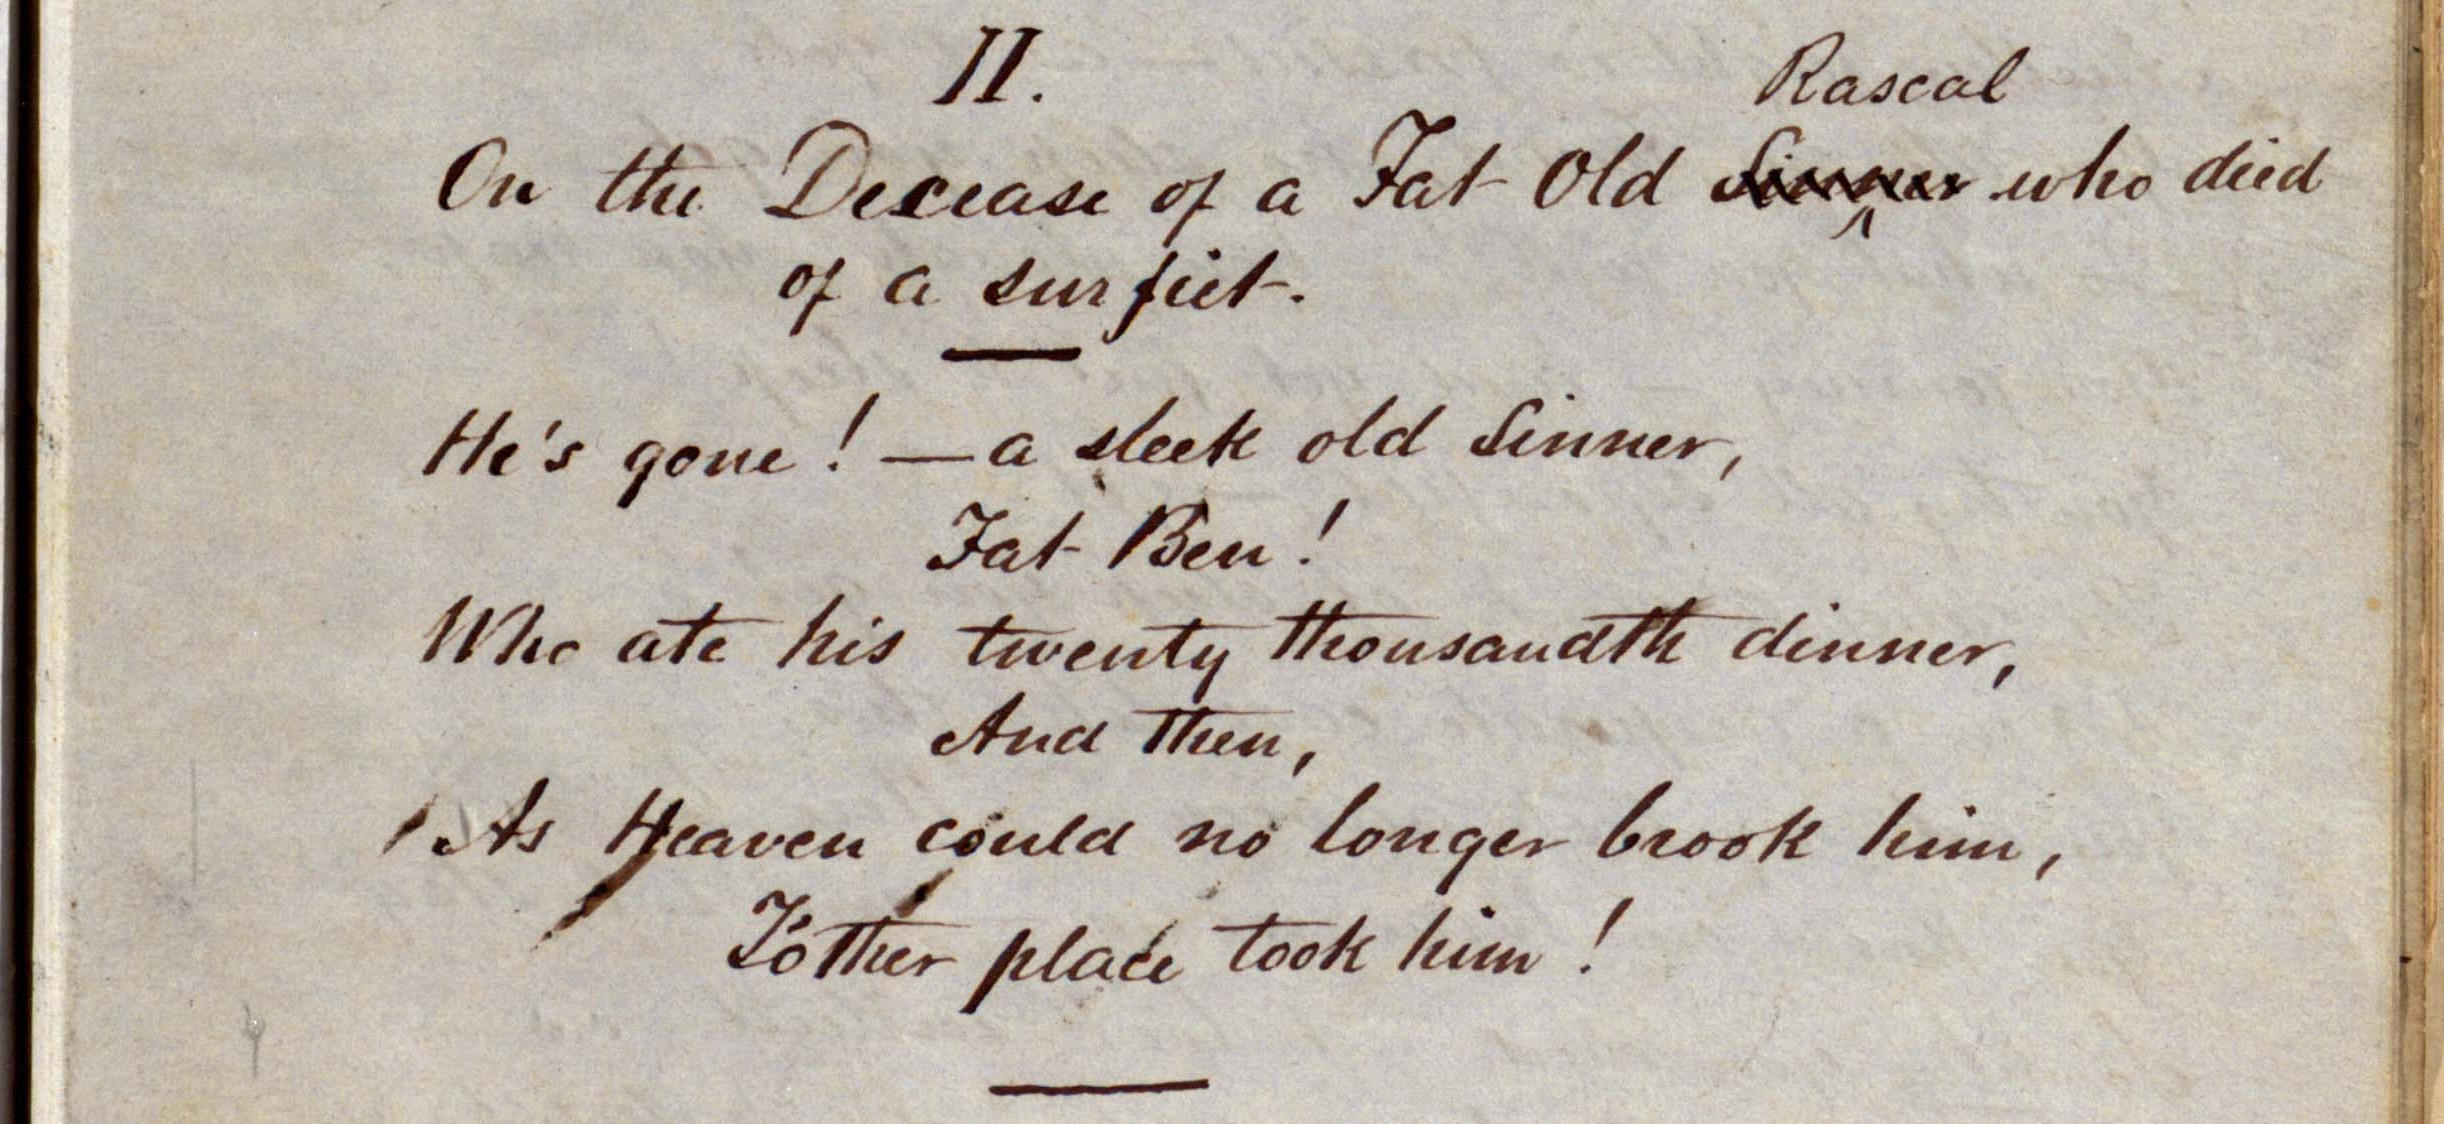 II.
On the Decease of a Fat Old Sinner Rascal who died
of a surfiet.
He's gone! — a sleek old Sinner,
Fat Ben!
Who ate his twenty thousandth dinner,
And then,
As Heaven could no longer brook him,
T'other place took him!